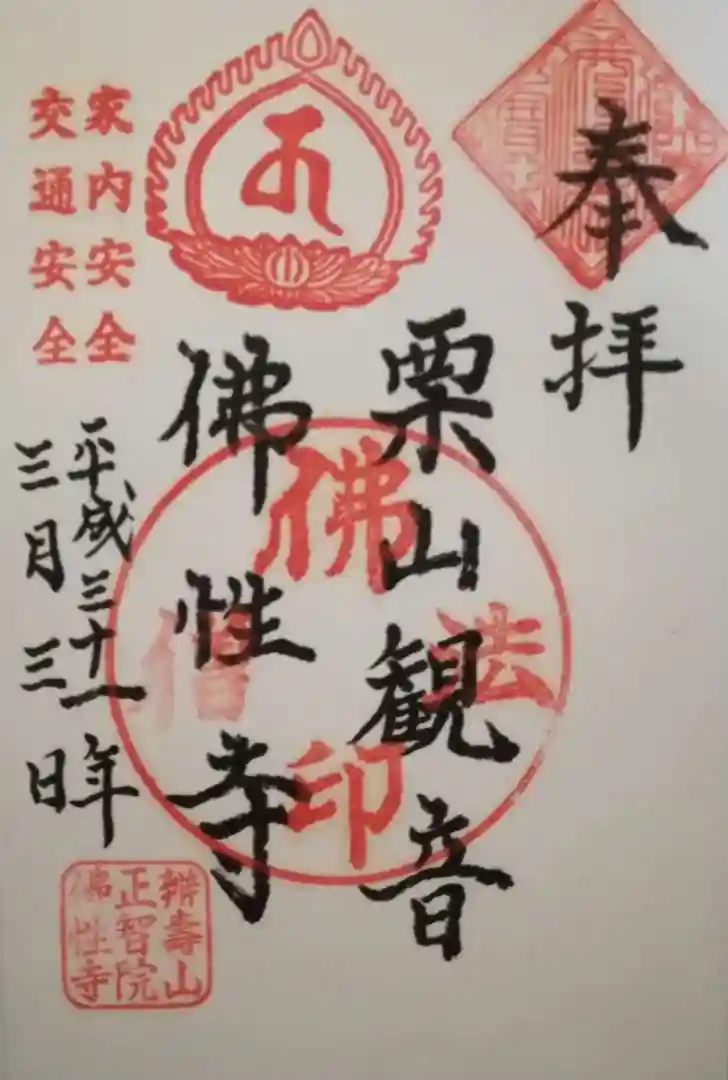 奉拝
栗山観音
佛性寺
佛法僧印
家内安全
交通安全
平成三十一年
三月三日
辨壽山
正智院
佛性寺